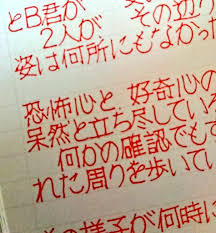 とB君が その辺り
2人が
姿は何所にもなかった
恐怖心と 好奇心の
呆然と立ち尽している
何かの確認でもす
れた周りを歩いてい
様子が何時